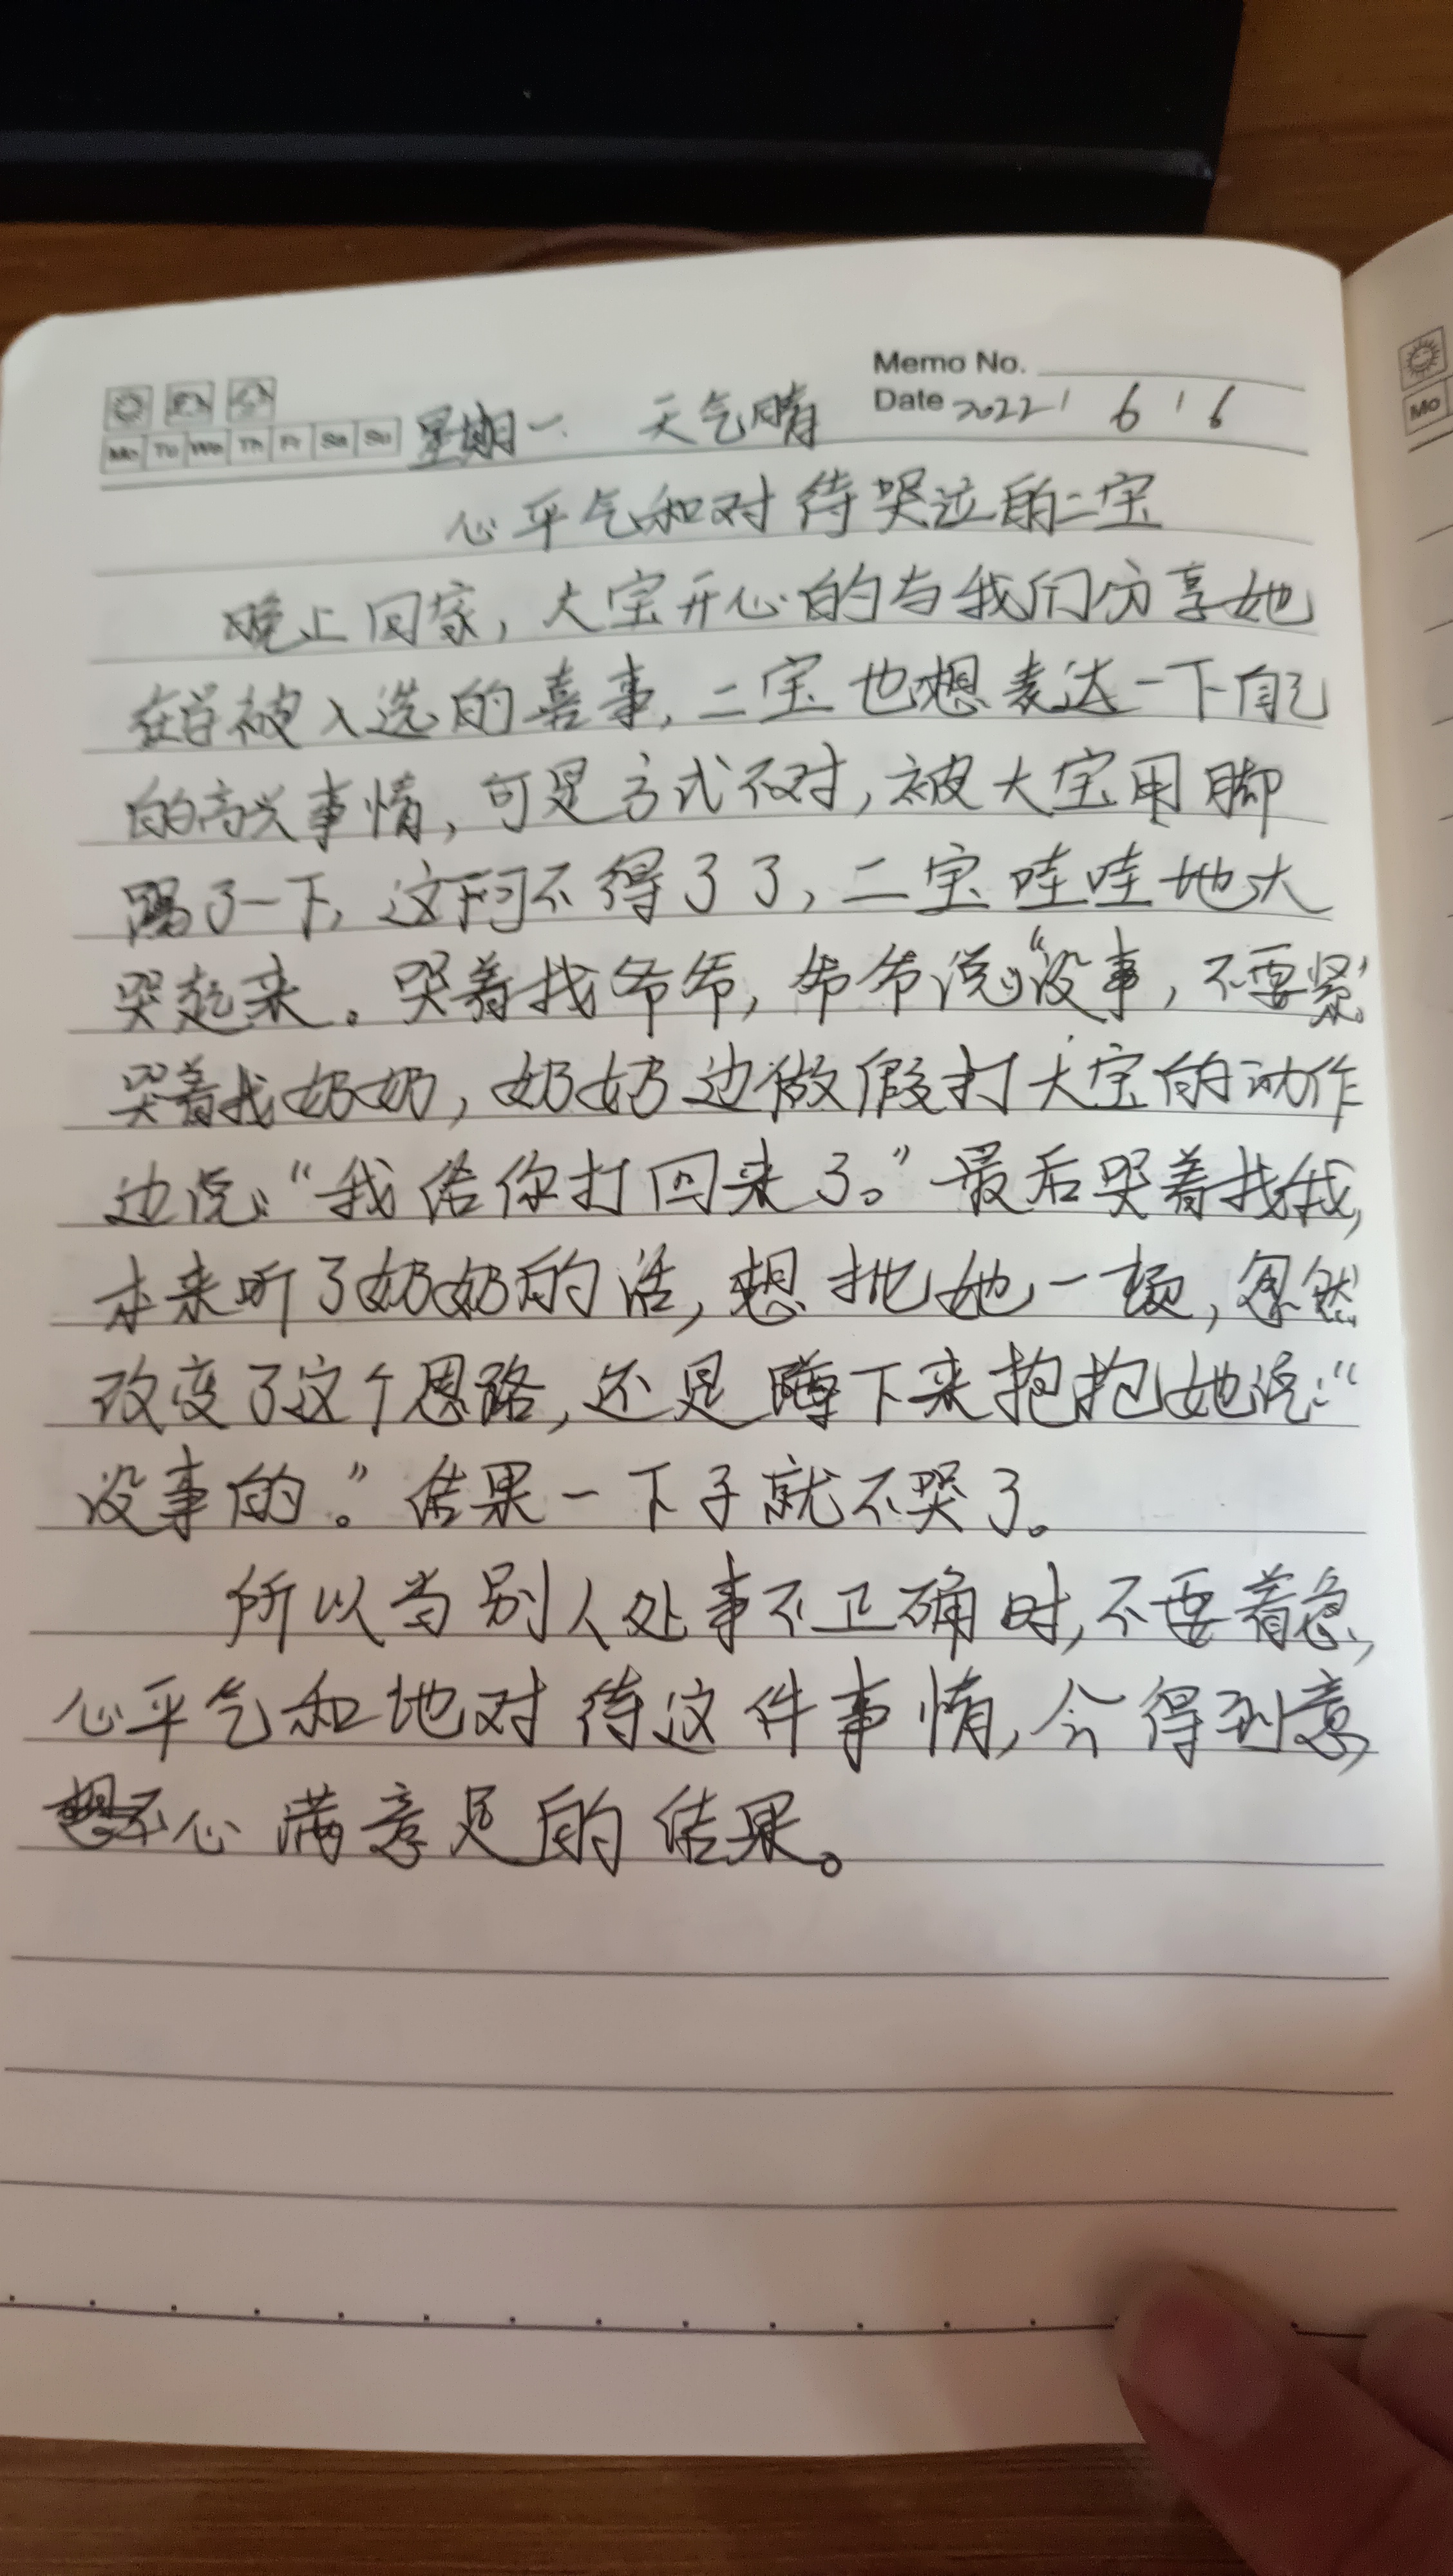 Memo No.
Mo Tu We Th Fr Sa Su 星期一 天气晴 Date 2022 / 6 / 6
心平气和对待哭泣的二宝
晚上回家，大宝开心的与我们分享她
在学被入选的喜事，二宝也想表达一下自己
的高兴事情，可是方式不对，被大宝用脚
踢了一下，这可不得了了，二宝哇哇地大
哭起来。哭着找爷爷，爷爷说“没事，不要紧”
哭着找奶奶，奶奶边做假打大宝的动作
边说：“我给你打回来了。”最后哭着找我，
本来听了奶奶的话，想批她一顿，忽然
改变了这个思路，还是蹲下来抱抱她说：“
没事的。”结果一下子就不哭了。
所以当别人处事不正确时，不要着急，
心平气和地对待这件事情，会得到意
心满意足的结果。
Mo